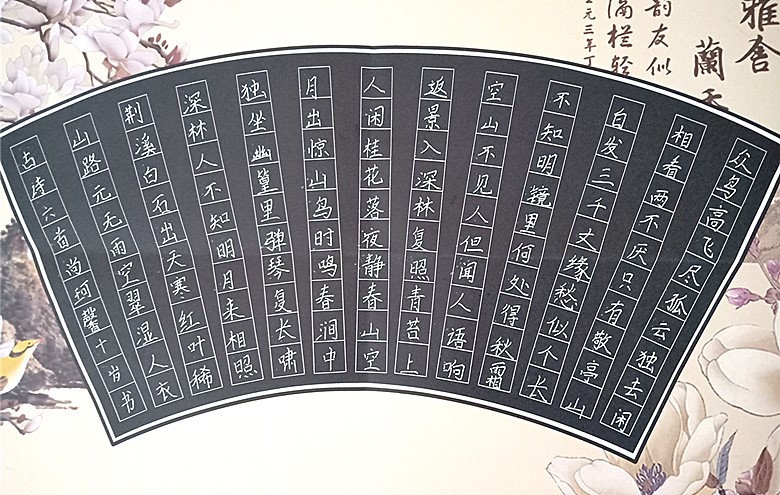 雅舍
蘭
韵友似
栏轻
元三年丁
众鸟高飞尽孤云独去闲
相看两不厌只有敬亭山
白发三千丈缘愁似个长
不知明镜里何处得秋霜
空山不见人但闻人语响
返景入深林复照青苔上
人闲桂花落夜静春山空
月出惊山鸟时鸣春涧中
独坐幽篁里弹琴复长啸
深林人不知明月来相照
荆溪白石出天寒红叶稀
山路元无雨空翠湿人衣
古诗六首尚珂馨十岁书